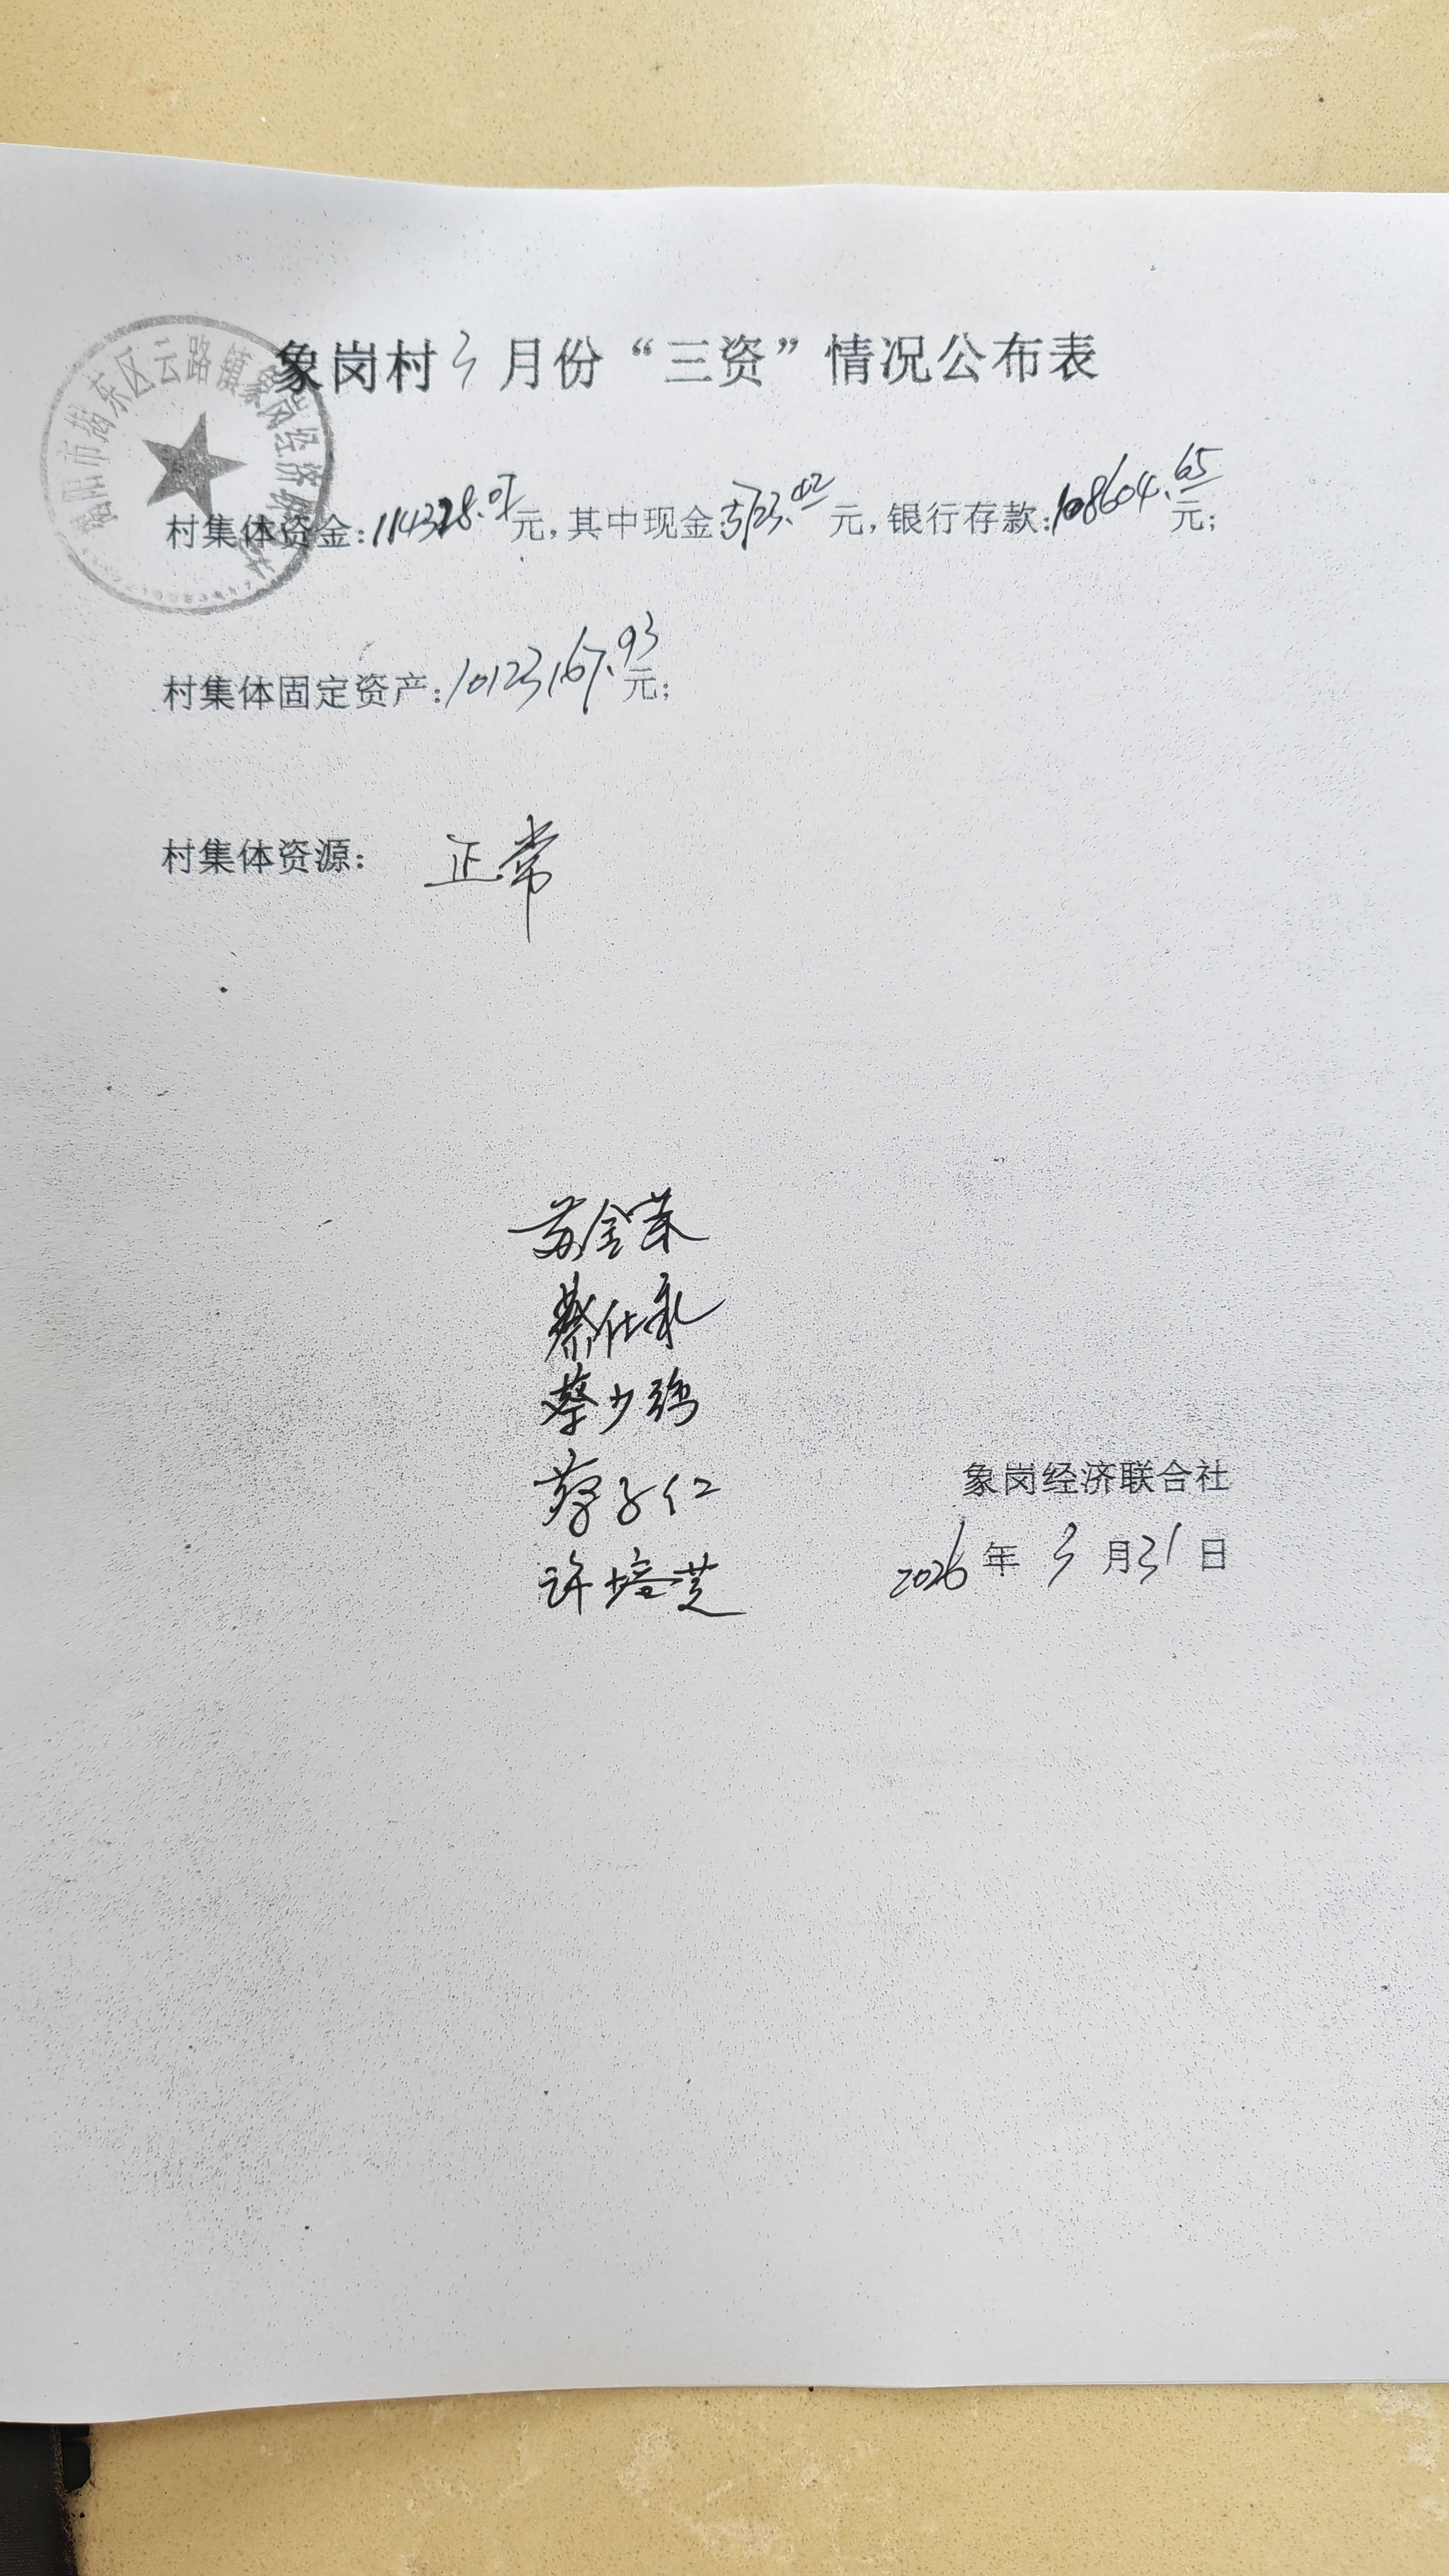 象岗村3月份“三资”情况公布表
村集体资金:114328.07元,其中现金:5723.42元,银行存款:108604.65元;
村集体固定资产:10123167.93元;
村集体资源: 正常
苏金荣
蔡仕永
蔡少强
蔡子仁
许培芝
象岗经济联合社
2026年3月31日
揭阳市揭东区云路镇象岗经济联合社